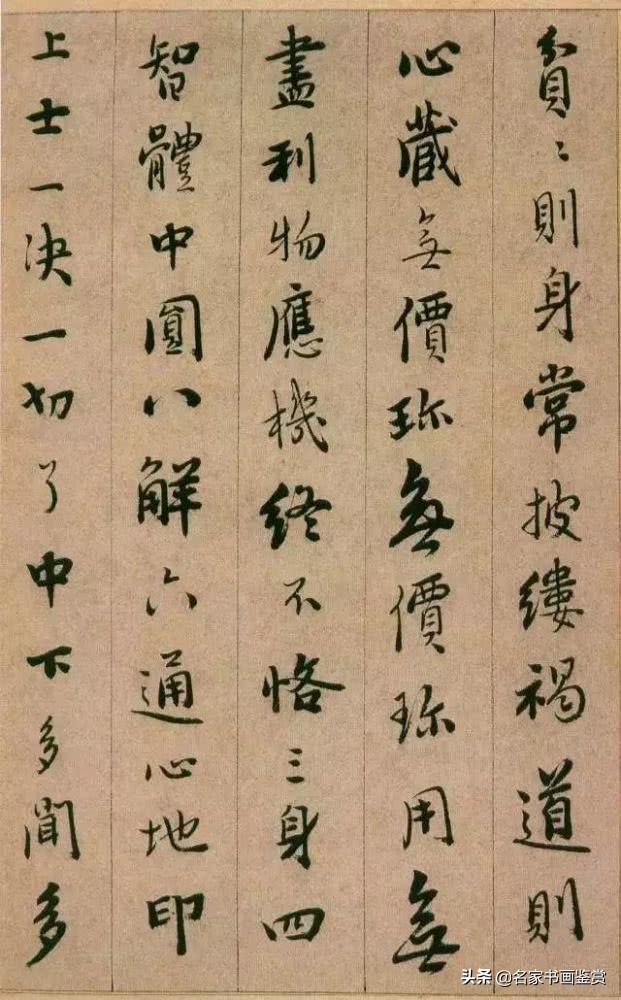 貧〻則身常披縷褐道則
心藏無價珎無價珎用無
盡利物應機終不悋三身四
智體中圓八解六通心地印
上士一決一切了中下多聞多
头条 @名家书画鉴赏